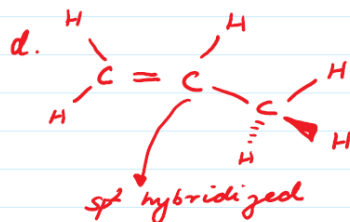 H H
d.
C = C H
H C
H
H
sp² hybridized